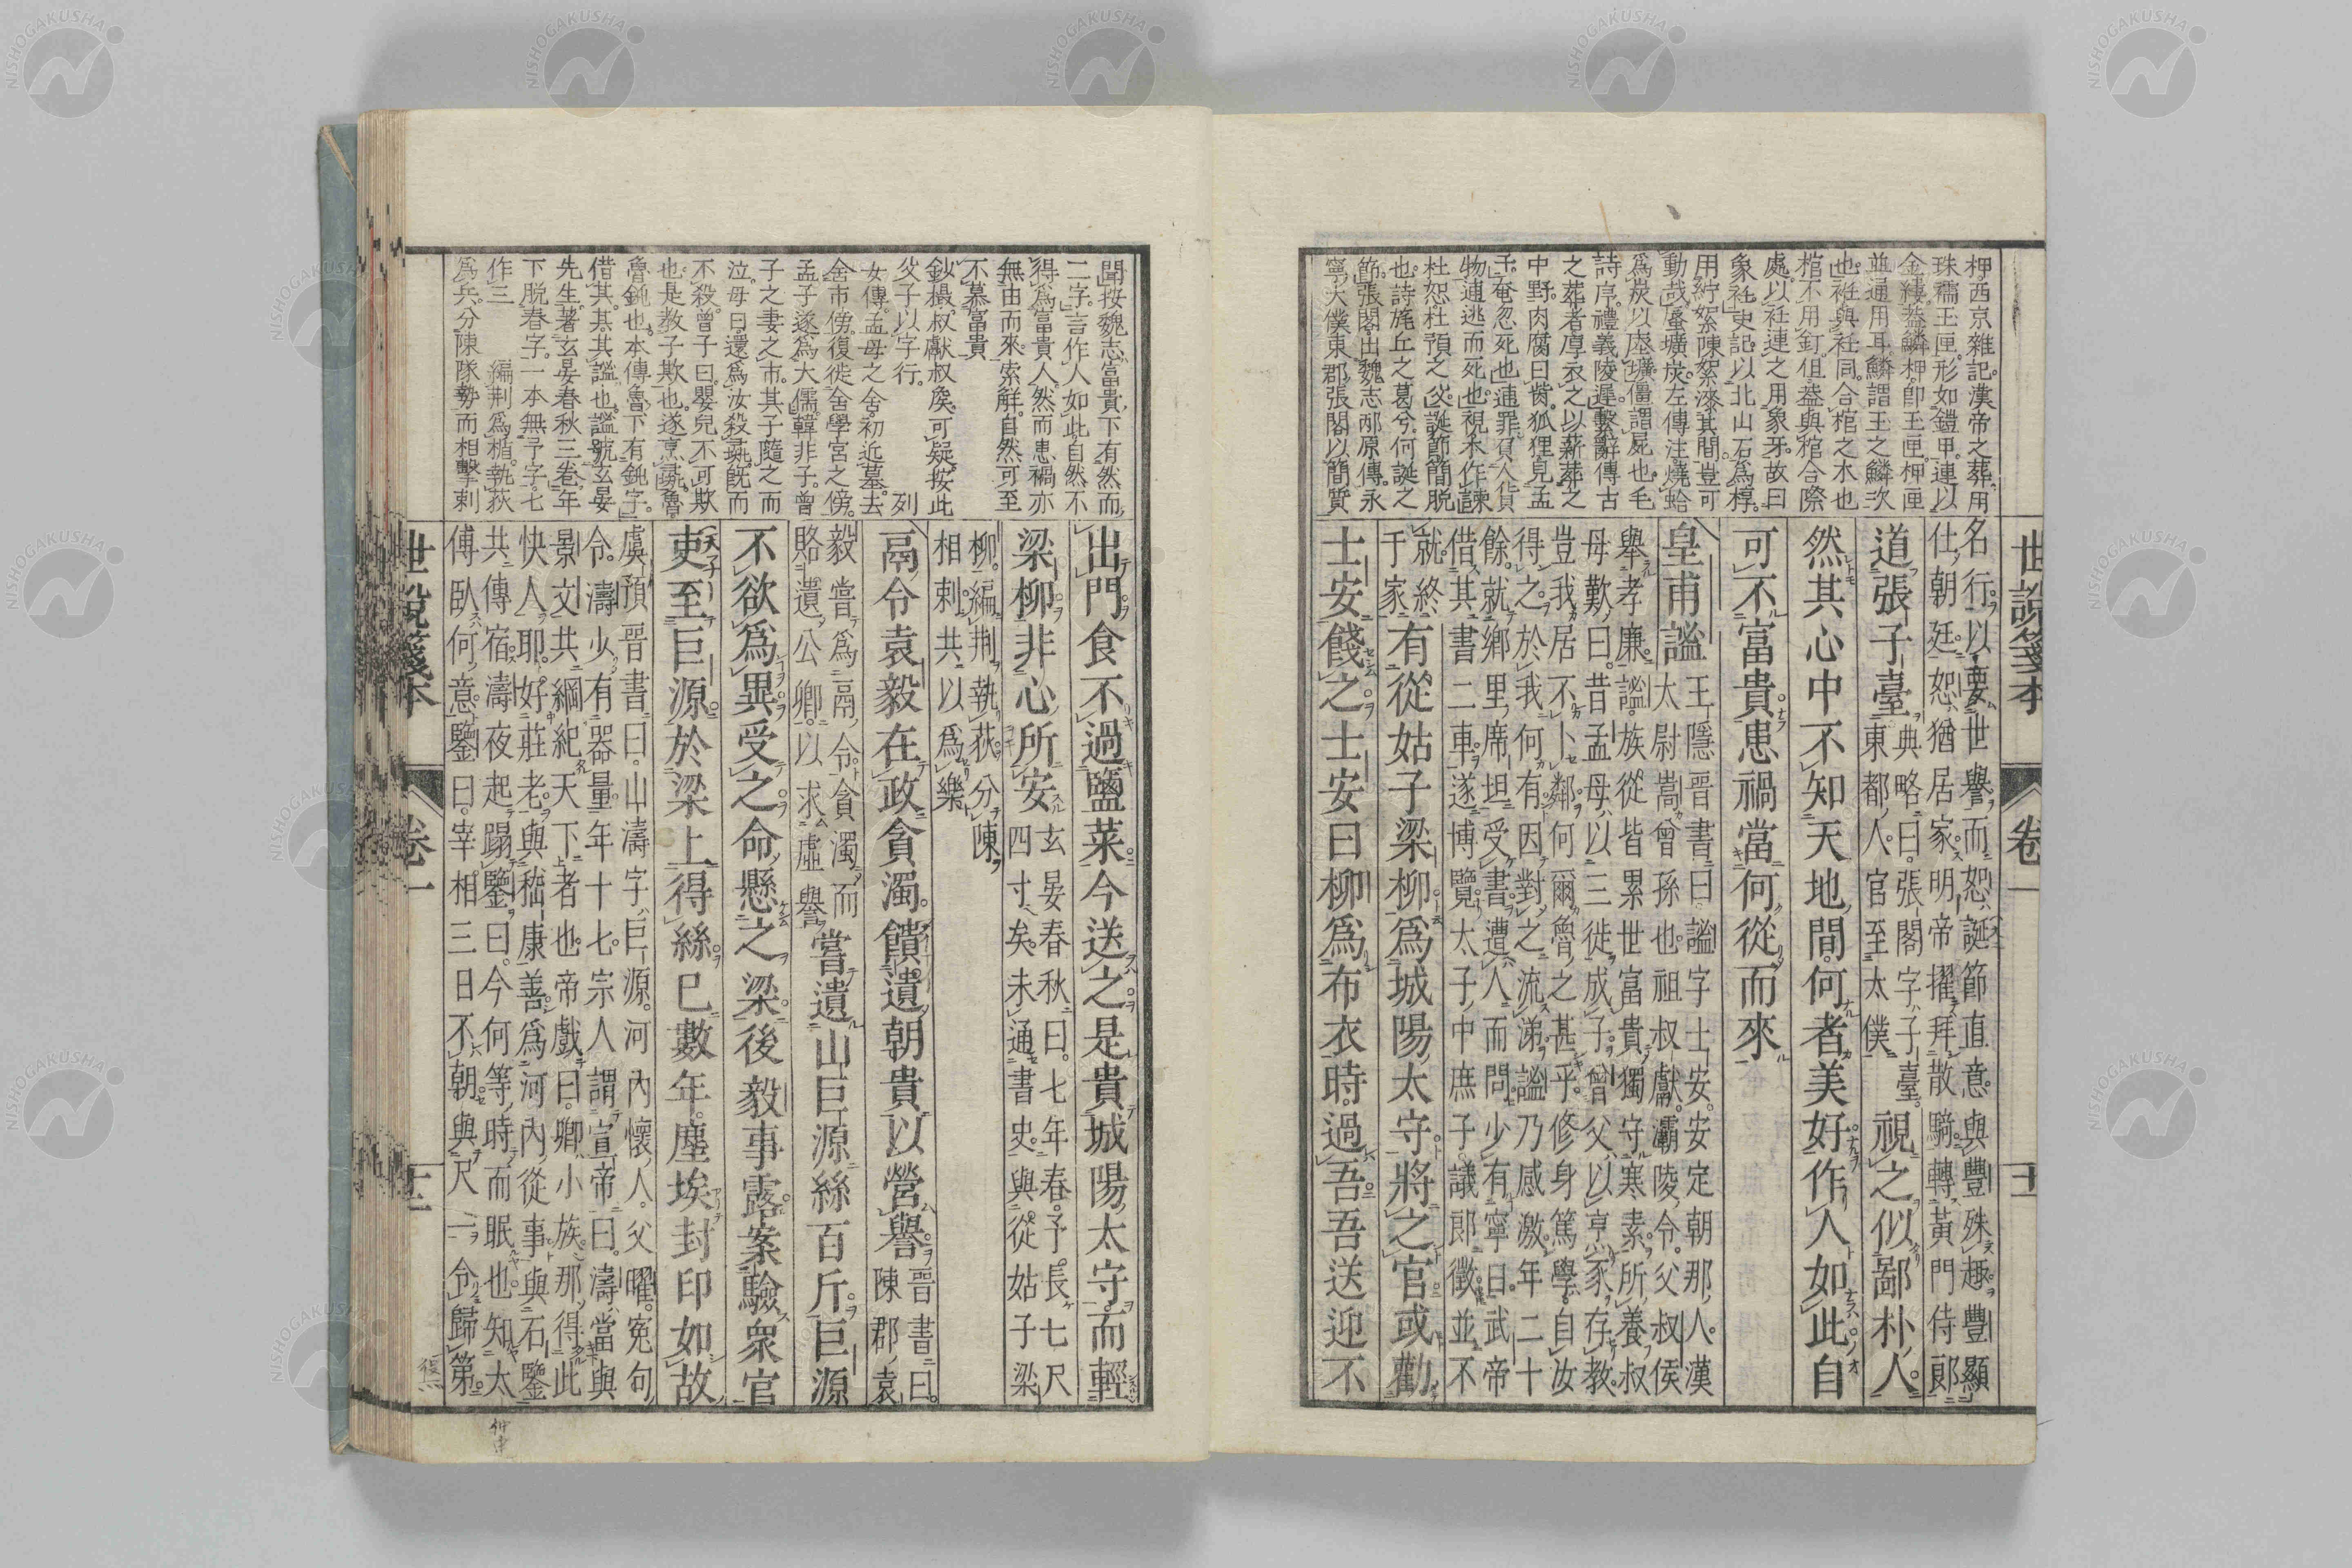 柙西京雜記。漢帝之葬。用
珠襦玉匣。形如鎧甲。連以
金縷。葢鱗柙。卽玉匣。柙匣
並通用耳。鱗謂玉之鱗次
也。衽與衽同。合棺之木也
棺不用釘。但葢與棺合際
處。以衽連之。用象牙。故曰
象衽。史記。以北山石。爲椁。
用紵絮陳絮漆其間。豈可
動哉。蜃壙。左傳注。燒蛤
爲炭以塗壙。僵謂屍也。毛
詩序。禮義陵遲。繫辭傳。古
之葬者。厚衣之以薪。葬之
中野。肉腐曰胔。狐狸見孟
子。奄忽死也。逋罪負人貨
物逋逃而死也。視禾作諫
杜恕。杜預之父。誕節簡脫
也。詩旄丘之葛兮。何誕之
節。張閣。出魏志邴原傳。永
寧大僕東郡張閣以簡質
世說箋本 卷一 十一
名行以要世譽。而恕誕節直意。與豐殊趣。豐顯
仕朝廷。恕猶居家。明帝擢拜散騎。轉黃門侍郞
道張子臺典略曰。張閣字子臺。
東都人。官至太僕視之似鄙朴人。
然其心中不知天地間何者美好作人如此自
可不富貴患禍當何從而來
皇甫謐王隱晉書曰。謐字士安。安定朝那人。漢
太尉嵩曾孫也。祖叔獻。灞陵令。父叔侯
舉孝廉。謐族從皆累世富貴獨守寒素。所養叔
母歎曰。昔孟母以三徙成子。曾父以烹豕存教。
豈我居不卜鄰。何爾魯之甚乎。修身篤學。自汝
得之。於我何有。因對之流涕。謐乃感激。年二十
餘就鄉里席坦受書。遭人而問。少有寧日。武帝
借其書二車。遂博覽。太子中庶子。議郞徵並不
就。終
于家有從姑子梁柳爲城陽太守將之官或勸
士安餞之士安曰柳爲布衣時過吾吾送迎不
聞按魏志。富貴下有然而
二字。言作人如此。自然不
得爲富貴人。然而患禍亦
無由而來。索解。自然可至
不慕富貴。
鈔撮。叔獻叔矦。可疑。按此
父子以字行。 列
女傳。孟母之舍。初近墓。去
舍市傍。復徙舍學宮之傍。
孟子遂爲大儒。韓非子。曾
子之妻之市。其子隨之而
泣。母曰還。爲汝殺彘。旣而
不殺。曾子曰。嬰兒不可欺
也。是教子欺也。遂烹彘。魯
魯鈍也。本傳魯下有鈍字。
借其。其其謐也。謐號玄晏
先生。著玄晏春秋三卷。年
下脫春字。一本無予字。七
作三 編荆爲楯。執荻
爲兵。分陳隊勢而相擊刺
出門食不過鹽菜今送之是貴城陽太守而輕
梁柳非心所安玄晏春秋曰。七年春。予長七尺
四寸矣。未通書史。與從姑子梁
柳。編荆執荻。分陳
相刺。共以爲樂
鬲令袁毅在政貪濁饋遺朝貴以營譽晉書曰。
陳郡袁
毅嘗爲鬲令。貪濁而
賂遺公卿。以求虛譽嘗遺山巨源絲百斤巨源
不欲爲異受之命懸之梁後毅事露案驗衆官
吏至巨源於梁上得絲已數年塵埃封印如故
虞預晉書曰。山濤字巨源。河內懷人。父曜。寃句
令。濤少有器量。年十七。宗人謂宣帝曰。濤當與
景文共綱紀天下者也。帝戲曰。卿小族。那得此
快人耶。好莊老。與嵇康善。爲河內從事。與石鑒
共傳宿。濤夜起蹋鑒曰。今何等時而眠也。知太
傅臥何意。鑒曰。宰相三日不朝。與尺一令歸第。
世說箋本 卷一 十二